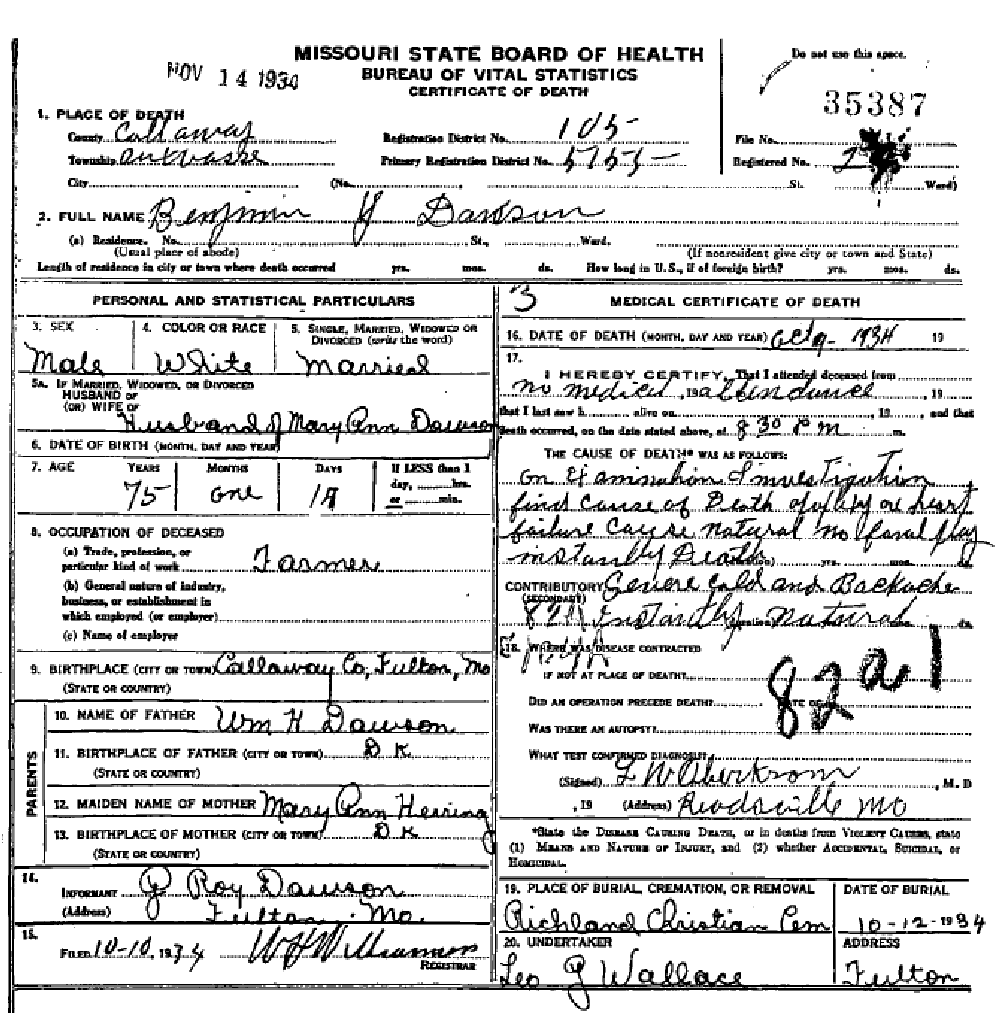 MISSOURI STATE BOARD OF HEALTH
BUREAU OF VITAL STATISTICS
CERTIFICATE OF DEATH
NOV 14 1934
Do not use this space.
35387
1. PLACE OF DEATH
County Callaway Registration District No. 105 File No.
Township Primary Registration District No. 5753 Registered No. 2
City (No. St. Ward)
2. FULL NAME Benjmin Dawson
(a) Residence. No. St., Ward.
(Usual place of abode) (If nonresident give city or town and State)
Length of residence in city or town where death occurred yrs. mos. ds. How long in U.S., if of foreign birth? yrs. mos. ds.
PERSONAL AND STATISTICAL PARTICULARS
3. SEX 4. COLOR OR RACE 5. SINGLE, MARRIED, WIDOWED OR
DIVORCED (write the word)
Male White Married
5a. IF MARRIED, WIDOWED, OR DIVORCED
HUSBAND OF
(OR) WIFE OF Husband of Mary Ann Dawson
6. DATE OF BIRTH (MONTH, DAY AND YEAR)
7. AGE YEARS MONTHS DAYS If LESS than 1
day, hrs.
or min.
75 one
8. OCCUPATION OF DECEASED
(a) Trade, profession, or
particular kind of work Farmer
(b) General nature of industry,
business, or establishment in
which employed (or employer)
(c) Name of employer
9. BIRTHPLACE (CITY OR TOWN) Callaway Co, Fulton, Mo
(STATE OR COUNTRY)
PARENTS
10. NAME OF FATHER Wm H Dawson
11. BIRTHPLACE OF FATHER (CITY OR TOWN) D K
(STATE OR COUNTRY)
12. MAIDEN NAME OF MOTHER Mary Ann Herring
13. BIRTHPLACE OF MOTHER (CITY OR TOWN) D K
(STATE OR COUNTRY)
14.
INFORMANT Roy Dawson
(Address) Fulton Mo.
15.
FILED 10-10, 1934 W H Williamson
REGISTRAR
3
MEDICAL CERTIFICATE OF DEATH
16. DATE OF DEATH (MONTH, DAY AND YEAR) Oct 9 - 1934 19
17.
I HEREBY CERTIFY, That I attended deceased from
no medicel, 19 attendance, 19
that I last saw h alive on, 19, and that
death occurred, on the date stated above, at 8 30 P m m.
THE CAUSE OF DEATH* WAS AS FOLLOWS:
on Examination & investigation
find cause of Death or heart
failure cause natural no
Death
CONTRIBUTORY cold and Backache
(SECONDARY) Instantly natural
18. WHERE WAS DISEASE CONTRACTED
IF NOT AT PLACE OF DEATH?
82a1
DID AN OPERATION PRECEDE DEATH? DATE OF
WAS THERE AN AUTOPSY?
WHAT TEST CONFIRMED DIAGNOSIS?
(Signed), M. D
, 19 (Address) Readsville Mo
*State the DISEASE CAUSING DEATH, or in deaths from VIOLENT CAUSES, state
(1) MEANS AND NATURE OF INJURY, and (2) whether ACCIDENTAL, SUICIDAL, or
HOMICIDAL.
19. PLACE OF BURIAL, CREMATION, OR REMOVAL DATE OF BURIAL
Richland Christian Cem 10-12-1934
20. UNDERTAKER ADDRESS
Leo J Wallace Fulton